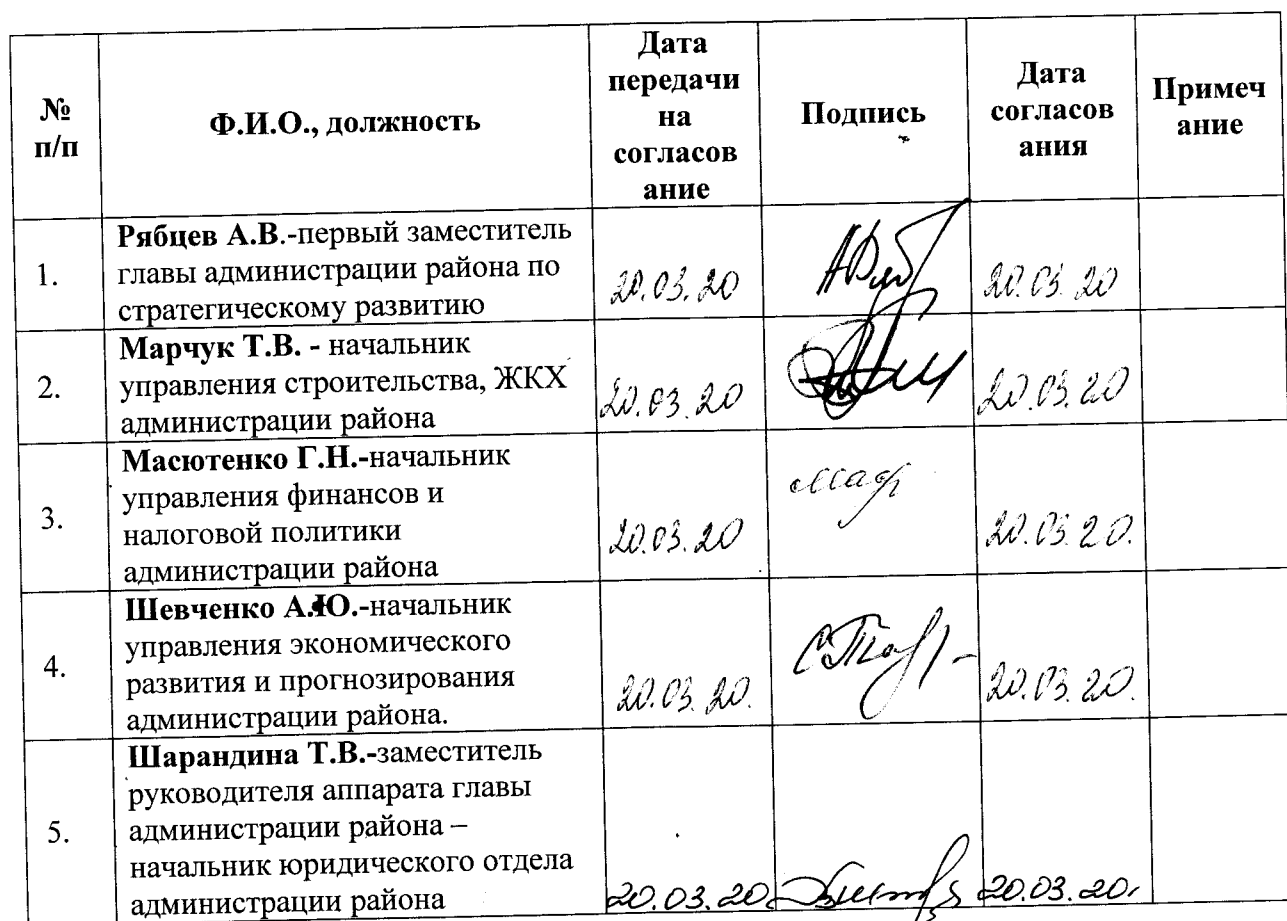 №
п/п
Ф.И.О., должность
Дата
передачи
на
согласов
ание
Подпись
Дата
согласов
ания
Примеч
ание
1.
Рябцев А.В.-первый заместитель
главы администрации района по
стратегическому развитию
20.03.20
20.03.20
2.
Марчук Т.В. - начальник
управления строительства, ЖКХ
администрации района
20.03.20
20.03.20
3.
Масютенко Г.Н.-начальник
управления финансов и
налоговой политики
администрации района
20.03.20
20.03.20.
4.
Шевченко А.Ю.-начальник
управления экономического
развития и прогнозирования
администрации района.
20.03.20.
20.03.20.
5.
Шарандина Т.В.-заместитель
руководителя аппарата главы
администрации района –
начальник юридического отдела
администрации района
20.03.20
20.03.20.